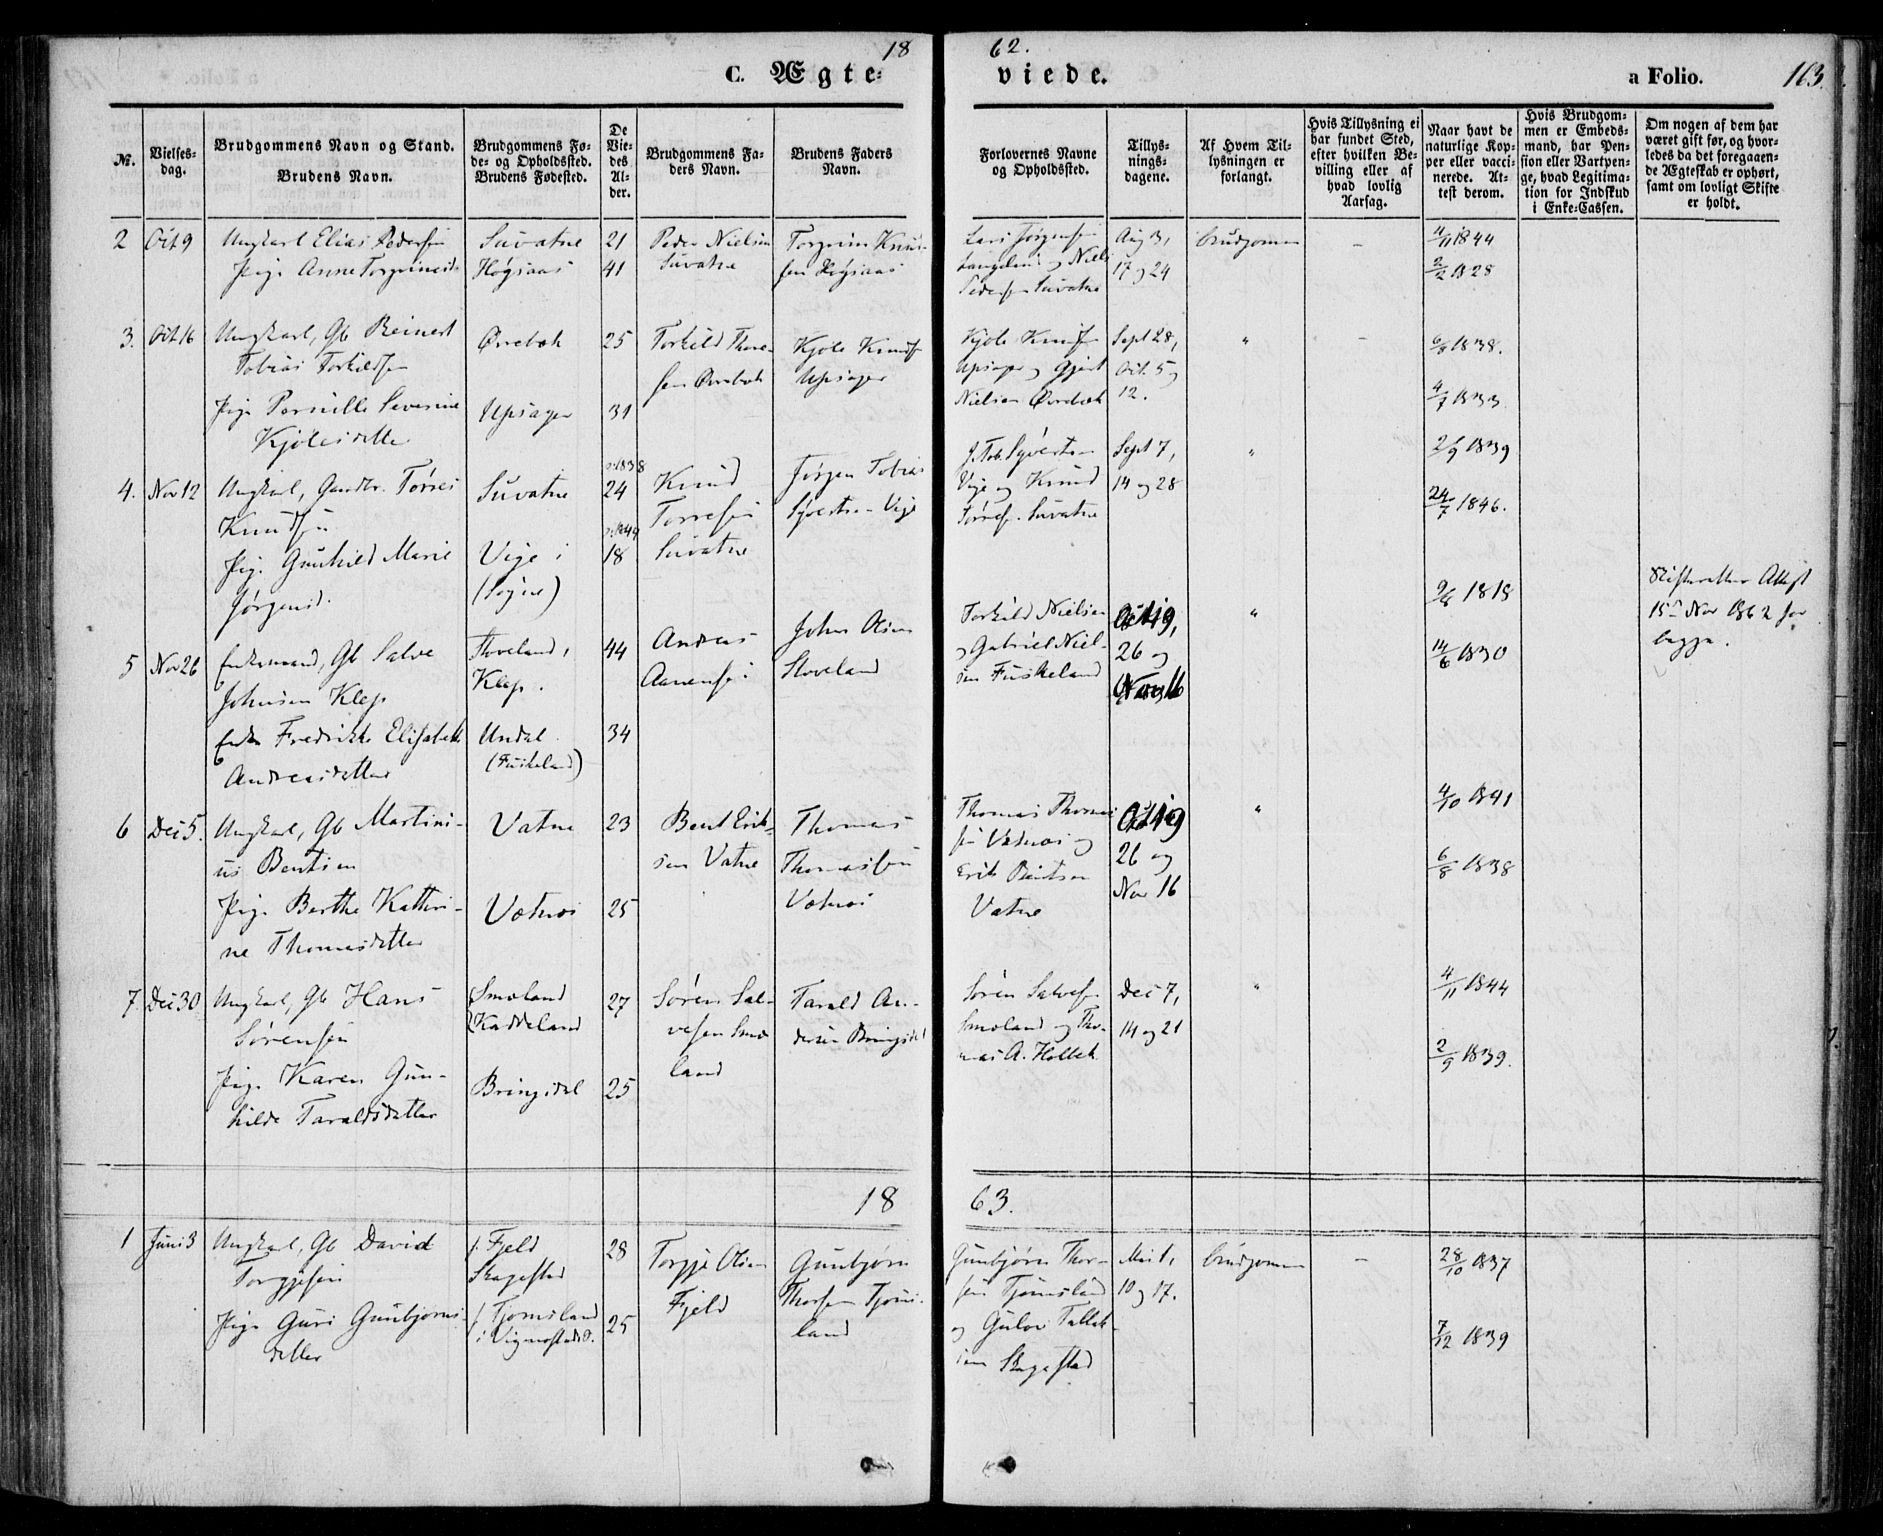 18 62.
C. Ægte- viede. a Folio. 163.
№.
Vielses-
dag.
Brudgommens Navn og Stand.
Brudens Navn.
Brudgommens Fø-
de- og Opholdssted.
Brudens Fødested.
De
Vie-
des
Al-
der.
Brudgommens Fa-
ders Navn.
Brudens Faders
Navn.
Forlovernes Navne
og Opholdssted.
Tillys-
nings-
dagene.
Af Hvem Til-
lysningen er
forlangt.
Hvis Tillysning ei
har fundet Sted,
efter hvilken Be-
villing eller af
hvad lovlig
Aarsag.
Naar havt de
naturlige Kop-
per eller vacci-
nerede. At-
test derom.
Hvis Brudgom-
men er Embeds-
mand, har Pen-
sion eller Vartpen-
ge, hvad Legitima-
tion for Indskud
i Enke-Cassen.
Om nogen af dem har
været gift før, og hvor-
ledes da det foregaaen-
de Ægteskab er ophørt,
samt om lovligt Skifte
er holdt.
2 Oct 9
Ungkarl Elias Pedersen
Pige Anne Torgrimsd.
Suvatne
Høgsaas
21
41
Peder Nielsen
Suvatne
Torgrim Knud-
sen Høgsaas
Lars Jørgensen
og Niels
Pedersen Suvatne
Aug 3,
17 og 24
brudgommen
–
4/11 1844
2/2 1828
3. Oct 16
Ungkarl, Gb Reinert
Tobias Torkildsen
Pige Pernille Severine
Kjølesdatter
Øvrebøk
Upsager
25
31
Torkild Thore-
sen Øvrebøk
Kjøle Knuds
Upsager
Kjøle Knuds
Upsager og Gjert
Nielsen Øvrebøk
Sept 28,
Oct. 5 og
12.
"
–
6/8 1838.
4/7 1833
4. Nov 12
Ungkarl, Gaardbr. Tørres
Knudsen
Pige Gunhild Marie
Jørgensd.
Suvatne
Vige i
(Søgne)
1838
24
1844
18
Knud
Torresen
Suvatne
Jørgen Tobias
Syvertsen Vige
J. Tob. Syvertsen
Vige og Knud
Tørres. Suvatne
Sept 7,
14 og 28
"
2/9 1839
24/7 1846.
5 Nov 26
Enkemand, Gb Salve
Johnsen Klep
Enke Fredrikke Elisabeth
Andreasdatter
Stoveland,
Klep.
Undal
(Fuskeland)
44
34
Andreas
Aanensen
John Olsen
Stoveland
Torkild Nielsen
og Gabriel Niel-
sen Fuskeland
Oct 19,
26 og
Nov 16
"
9/8 1818
14/6 1830
Skifteretten Attest
15de Nov 1862 for
begge.
6 Dec 5.
Ungkarl, Gb Martini-
us Bentsen
Pige Berthe Kathri-
ne Thomasdatter
Vatne
Vatnøi
23
25
Bent Erik-
sen Vatne
Thomas
Thomassen
Vatnøi
Thomas Thomas-
sen Vatnøi og
Erik Bentsen
Vatne
Oct 19
26 og
Nov 16
"
4/10 1841
6/8 1838
7. Dec 30
Ungkarl, Gb Hans
Sørensen
Pige Karen Gun-
hilde Taraldsdatter
Smoland
Kaddeland
Bringsdal
27
25
Søren Sal-
vesen Smo
land
Tarald An-
dersen Bringsdal
Søren Salvesen
Smoland og Tho-
mas A. Holbek
Dec 7,
14 og 21
"
4/11 1844
2/9 1839.
18 63.
1 Juni 3
Ungkarl, Gb David
Torgjesen
Pige Guri Gunbjørns-
datter
f. Fjeld
Skagestad
f. Tjomsland
i Vigmostad
28
25
Torgje Olsen
Fjeld
Gunbjørn
Thorsen Tjoms-
land
Gunbjørn Thor-
sen Tjomsland
og Gulov Tallak-
sen Skagestad
Mai 1,
10 og 17.
brudgommen
–
28/10 1837
7/12 1839